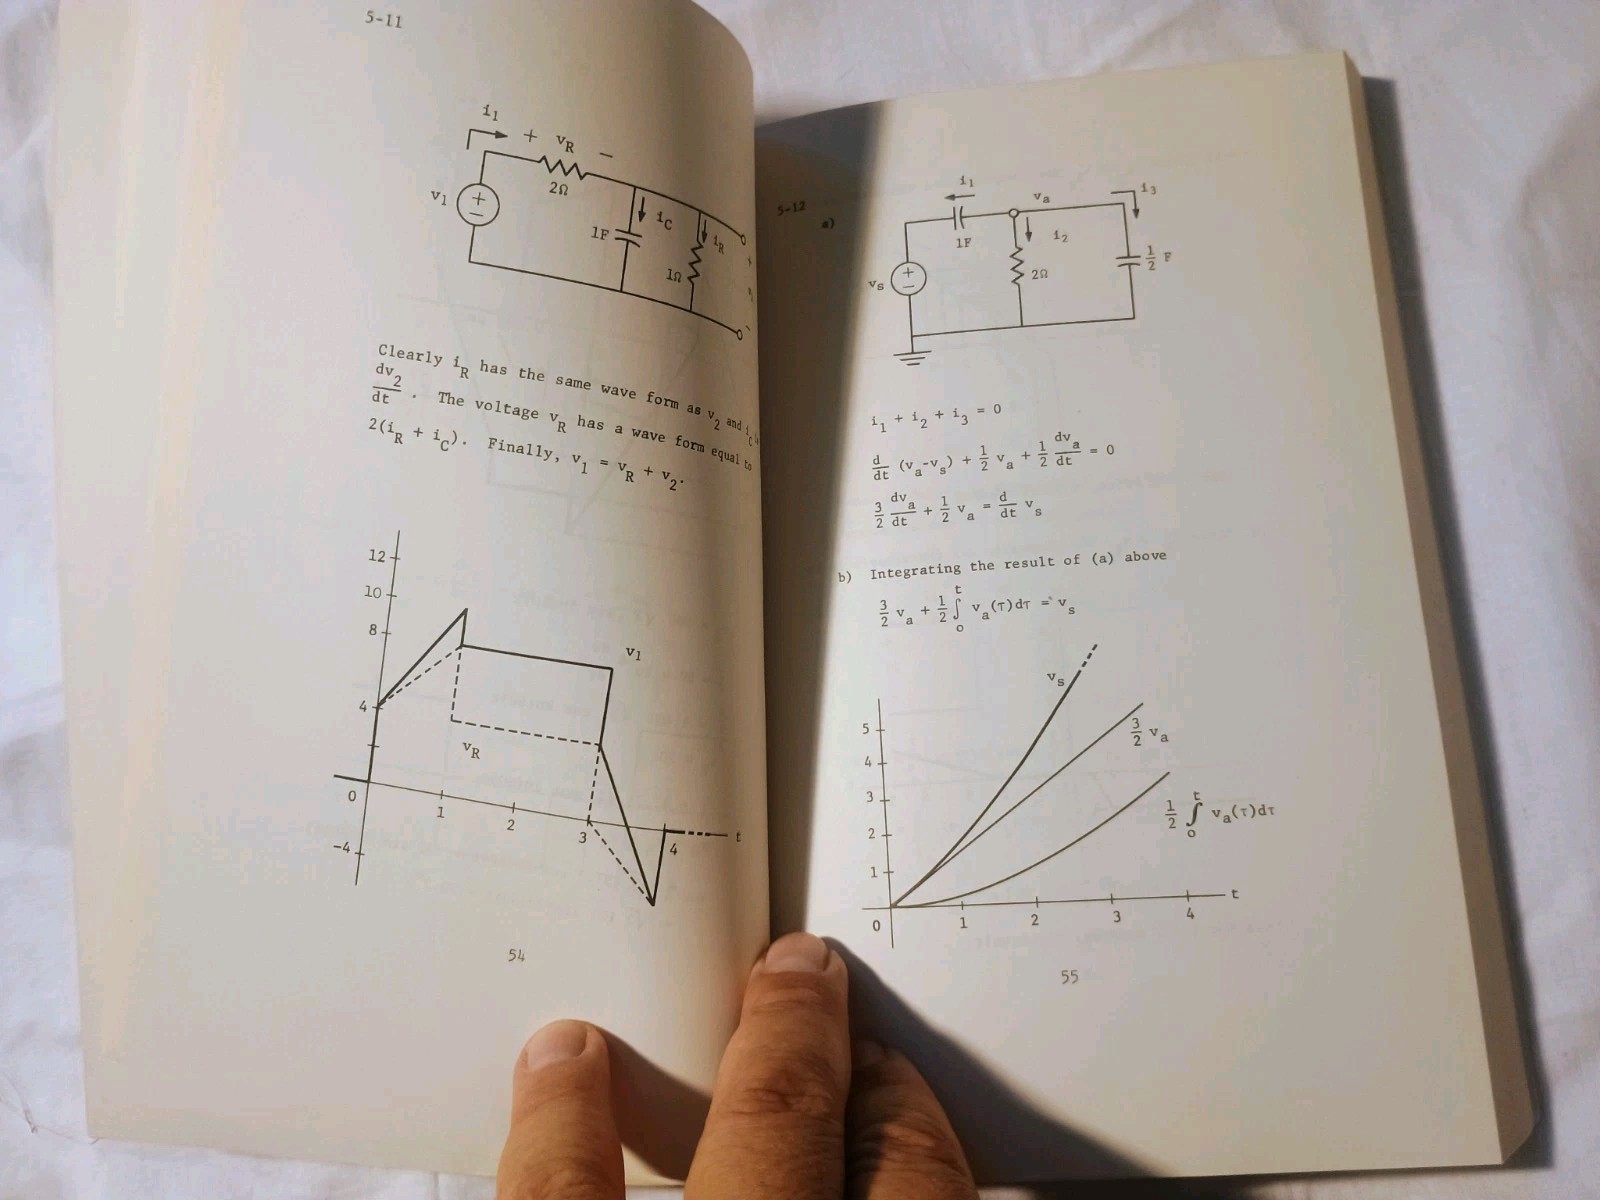 5-11
i1
+ vR −
2Ω
v1
+
−
iC
1F
iR
1Ω
+
−
Clearly iR has the same wave form as v2 and iC
dv2/dt . The voltage vR has a wave form equal to
2(iR + iC). Finally, v1 = vR + v2.
12
10
8
4
0
-4
1
2
3
4
t
v1
vR
54
5-12
a)
i1
va
i3
1F
i2
vs
+
−
2Ω
1/2 F
i1 + i2 + i3 = 0
d/dt (va-vs) + 1/2 va + 1/2 dva/dt = 0
3/2 dva/dt + 1/2 va = d/dt vs
b) Integrating the result of (a) above
3/2 va + 1/2 ∫0t va(τ)dτ = vs
vs
3/2 va
1/2 ∫0t va(τ)dτ
5
4
3
2
1
0
1
2
3
4
t
55